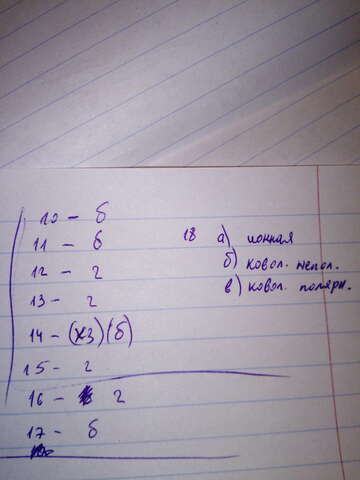 10 - б
11 - б
12 - г
13 - г
14 - (хз) (б)
15 - г
16 - г
17 - б
18 а) ионная
б) ковал. непол.
в) ковал. полярн.